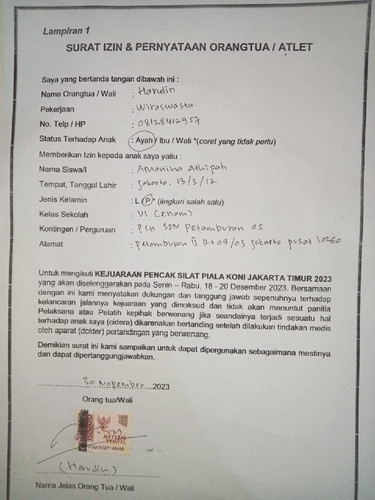 Lampiran 1
SURAT IZIN & PERNYATAAN ORANGTUA / ATLET
Saya yang bertanda tangan dibawah ini :
Nama Orangtua / Wali : Harudin
Pekerjaan : Wiraswasta
No. Telp / HP : 08128412957
Status Terhadap Anak : Ayah / Ibu / Wali *(coret yang tidak perlu)
Memberikan Izin kepada anak saya yaitu :
Nama Siswa/I : Amanina Athifah
Tempat, Tanggal Lahir : Jakarta, 13/3/12
Jenis Kelamin : L / P* (lingkari salah satu)
Kelas Sekolah : VI (enam)
Kontingen / Perguruan : PSH SDN Petamburan 05
Alamat : Petamburan II Rt 04/03 Jakarta pusat 10260
Untuk mengikuti KEJUARAAN PENCAK SILAT PIALA KONI JAKARTA TIMUR 2023
yang akan diselenggarakan pada Senin – Rabu, 18 - 20 Desember 2023. Bersamaan
dengan ini kami menyatakan dukungan dan tanggung jawab sepenuhnya terhadap
kelancaran jalannya kejuaraan yang dimaksud dan tidak akan menuntut panitia
Pelaksana atau Pelatih kepihak berwenang jika seandainya terjadi sesuatu hal
terhadap anak saya (cidera) dikarenakan bertanding setelah dilakukan tindakan medis
oleh aparat (dokter) pertandingan yang berwenang.
Demikian surat ini kami sampaikan untuk dapat dipergunakan sebagaimana mestinya
dan dapat dipertanggungjawabkan.
30 November 2023
Orang tua/Wali
METERAI
TEMPEL
(Harudin)
Nama Jelas Orang Tua / Wali